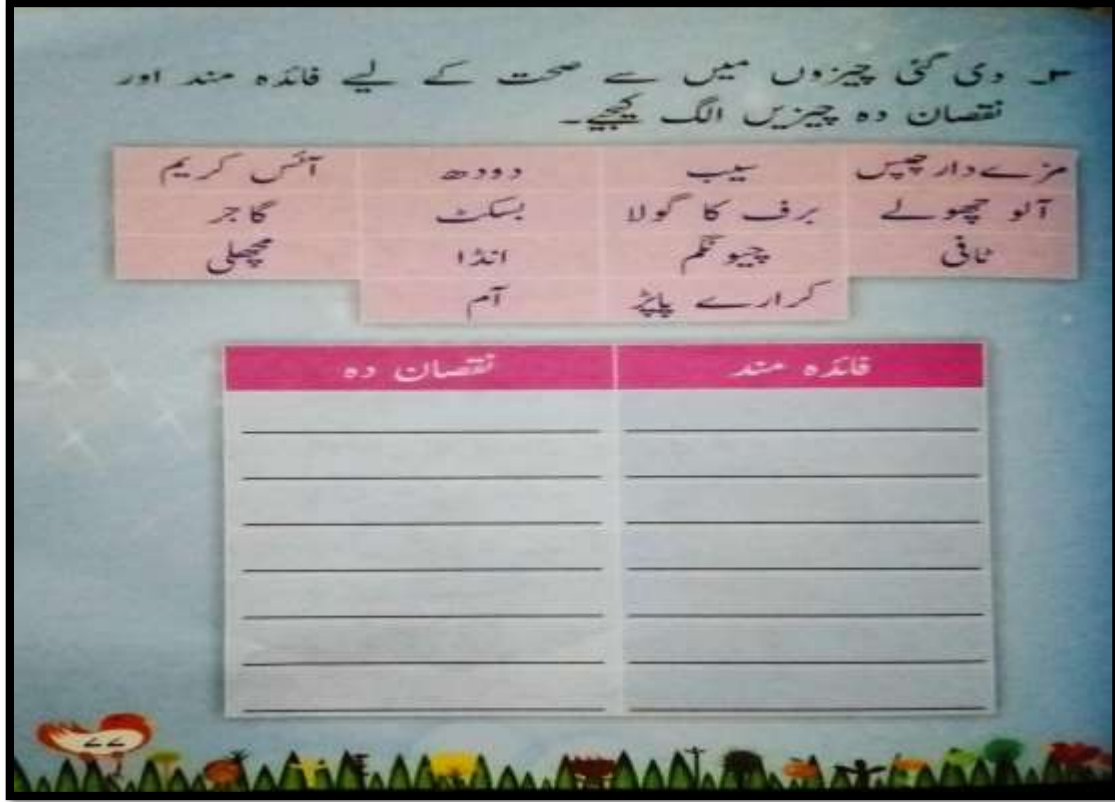 ۳۔ دی گئی چیزوں میں سے صحت کے لیے فائدہ مند اور
نقصان دہ چیزیں الگ کیجیے۔
مزے دار چپس سیب دودھ آئس کریم
آلو چھولے برف کا گولا بسکٹ گاجر
ٹافی چیونگم انڈا مچھلی
کرارے پاپڑ آم
فائدہ مند نقصان دہ
۷۷